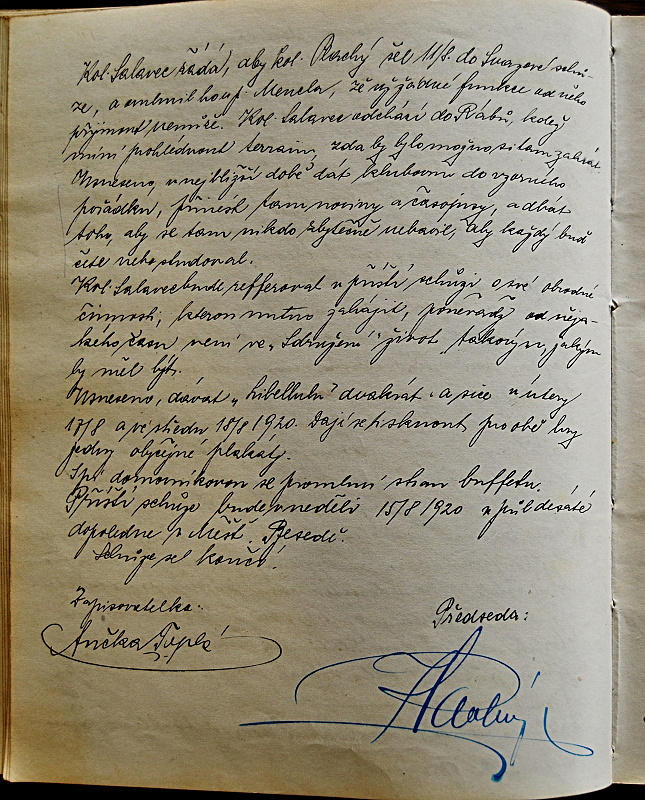 Kol. Salavec žádá, aby kol. Plachý šel 11/8. do Svazové schů-
ze, a omluvil kouf. Mencla, že již žádné funkce od něho
přijmout nemůže. Kol. Salavec odchází do Rábů, kdež
míní prohlédnout terrain, zda by bylo možno si tam zahrát.
Usneseno, v nejbližší době dát klubovnu do vzorného
pořádku, přinést tam noviny a časopisy, a dbát
toho, aby se tam nikdo zbytečně nebavil, aby každý buď
četl nebo studoval.
Kol. Salavec bude refferovat v příští schůzi o své obrodné
činnosti, kterou nutno zahájit, poněvadž od něja-
kého času není ve „Sdružení" život takovým, jakým
by měl být.
Usneseno, dávat „Libellulu" dvakrát a sice v úterý
17/8 a ve středu 18/8 1920. Dají se tisknout pro obě hry
jedny obyčejné plakáty.
S pí domovníkovou se promluví stran buffetu.
Příští schůze bude v neděli 15/8 1920 v půl desáté
dopoledne v Měšť. Besedě.
Schůze se končí.
Zapisovatelka:
Předseda:
Ančka Teplá
Plachý